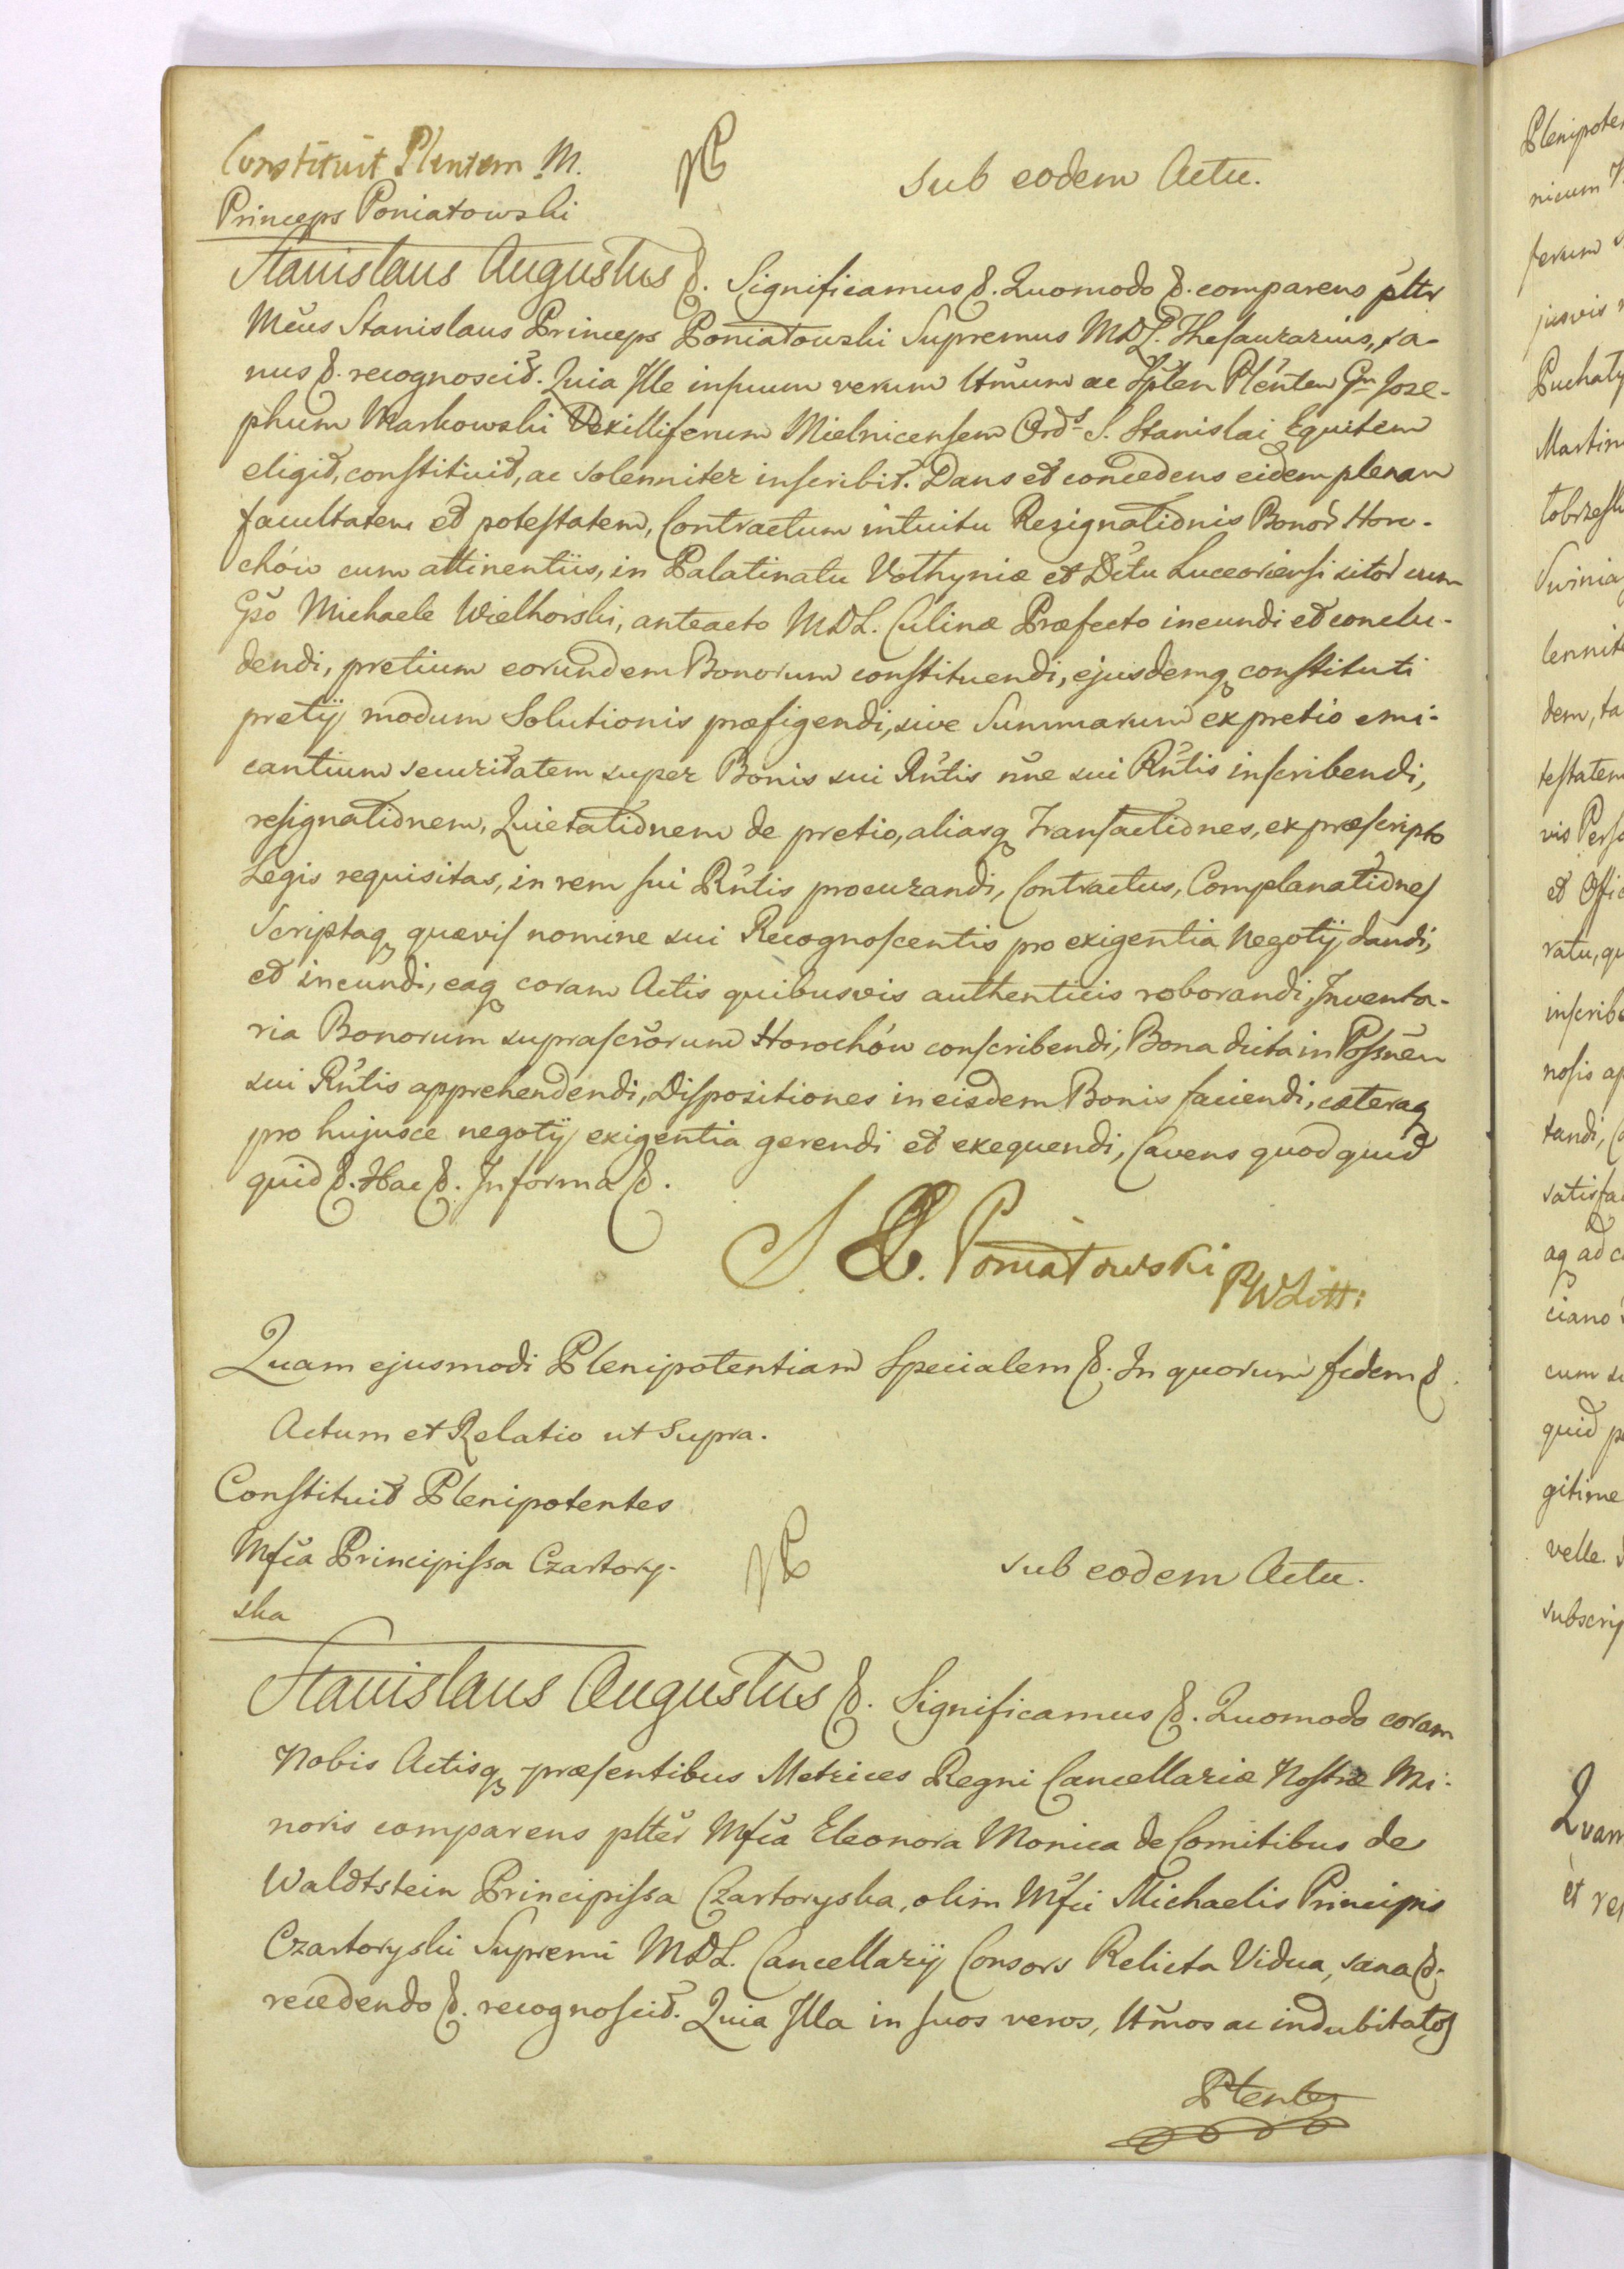 Constituit Plentem M.
Princeps Poniatowski
sub eodem Actu.
Stanislaus Augustus &. Significamus &. Quomodo &. comparens pltr
Mcus Stanislaus Princeps Poniatowski Supremus MDL. Thesaurarius, sa-
nus &. recognoscit. Quia Ille in suum verum Ltmum ac Splem Plentem Gm Jose-
phum Markowski Vexilliferum Mielnicensem Ords S. Stanislai Equitem
eligit, constituit, ac solenniter inscribit. Dans et concedens eidem plenam
facultatem et potestatem, Contractum intuitu Resignationis Bonor Horo-
chów cum attinentiis, in Palatinatu Volhyniæ et Dctu Luceoriensi sitor cum
Gso Michaele Wielhorski, anteacto MDL. Culinæ Præfecto ineundi et conclu-
dendi, pretium eorundem Bonorum constituendi, ejusdemq constituti
pretij modum Solutionis præfigendi, sive Summarum ex pretio emi-
cantium securitatem super Bonis sui Rntis nne sui Rntis inscribendi,
resignationem, Quietationem de pretio, aliasq Transactiones, ex præscripto
Legis requisitas, in rem sui Rntis procurandi, Contractus, Complanationes
Scriptaq quævis nomine sui Recognoscentis pro exigentia Negotij dandi,
et ineundi, eaq coram Actis quibusvis authenticis roborandi, Inventa-
ria Bonorum suprascrorum Horochów conscribendi, Bona dicta in Possnem
sui Rntis apprehendendi, Dispositiones in eisdem Bonis faciendi, cæteraq
pro hujusce negotij exigentia gerendi et exequendi, Cavens quod quid
quid &. Hac &. In forma &.
S X. Poniatowski PWLitt:
Quam ejusmodi Plenipotentiam Specialem &. In quorum fidem &.
Actum et Relatio ut Supra.
Constituit Plenipotentes
Mfca Principissa Czartory-
ska
sub eodem Actu.
Stanislaus Augustus &. Significamus &. Quomodo coram
Nobis Actisq præsentibus Metrices Regni Cancellariæ Nostræ Mi-
noris comparens plter Mfca Eleonora Monica de Comitibus de
Waldtstein Principissa Czartoryska, olim Mfci Michaelis Principis
Czartoryski Supremi MDL. Cancellarij Consors Relicta Vidua, sana &.
recedendo &. recognoscit. Quia Illa in suos veros, Ltmos ac indubitatos
Plentes